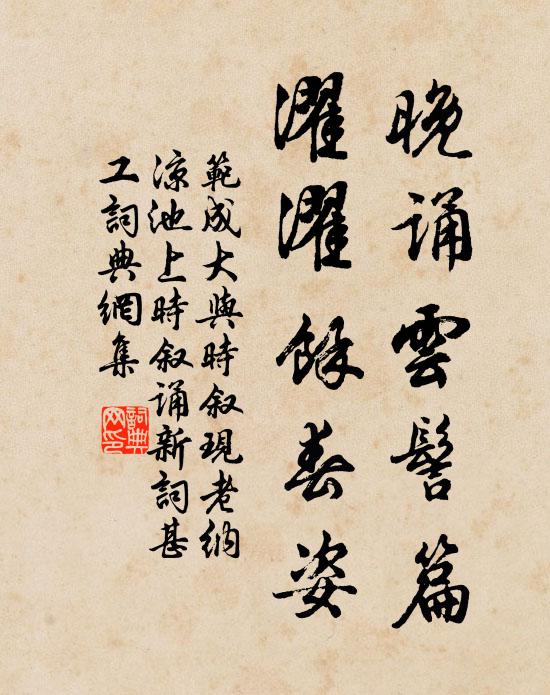 晚誦雲髻篇
濯濯餘春姿
範成大與時叙現老納
涼池上時叙誦新詞甚
工詞典網集
詞典
网印